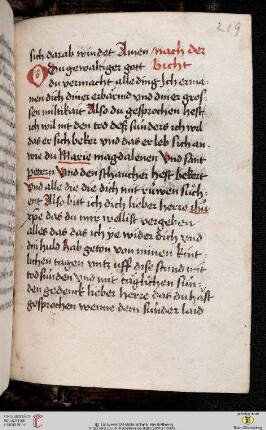 219
sich darab windet Amen nach der
O Du gewaltiger gott bicht
du vermacht alle ding Ich erma
nen dich diner erbärmd vnd diner gros
sen miltikait Also du gesprochen hest
ich wil nit den tod deß sunders ich wil
das er sich beker vnd das er leb sich an
wie du Marie magdalenen Vnd sant
petern Vnd den schaucher hest bekert
Vnd alle die die dich mit rüwen such
ent Also bitt ich dich lieber herre ihū
xpe das du mir wellist vergeben
alles das das ich ye wider dich vnd
din huld hab geton von minen kint
lichen tagen vntz uff dise stund mit
tod sünden vnd mit täglichen sün
den gedenck lieber herre das du hast
gesprochen wenne dem sunder laid
UNIVERSITÄTS-
BIBLIOTHEK
HEIDELBERG
© Universitätsbibliothek Heidelberg